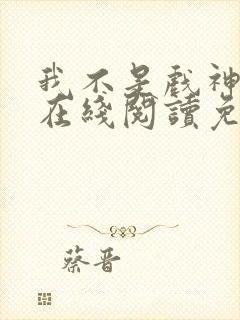 我不是戲神
在綫閱讀免
蔡晋